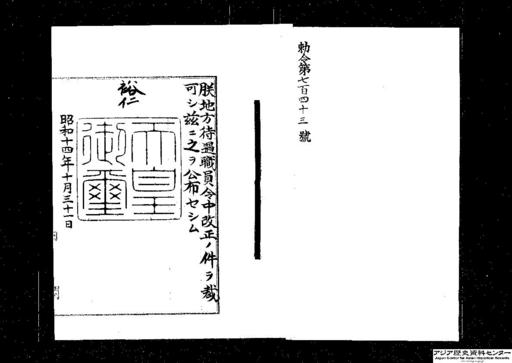 勅令第七百四十三號
朕地方待遇職員令中改正ノ件ヲ裁
可シ茲ニ之ヲ公布セシム
裕仁
天皇
御璽
昭和十四年十月三十一日
アジア歴史資料センター
Japan Center for Asian Historical Records